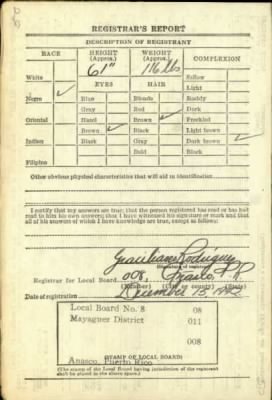 REGISTRAR'S REPORT
DESCRIPTION OF REGISTRANT
RACE HEIGHT (Approx.) WEIGHT (Approx.) COMPLEXION
61" 116 lbs
White EYES HAIR Sallow
Light
Negro Blue Blonde Ruddy
Gray Red Dark
Oriental Hazel Brown Freckled
Brown Black Light brown
Indian Black Gray Dark brown
Bald Black
Filipino
Other obvious physical characteristics that will aid in identification
I certify that my answers are true; that the person registered has read or has had
read to him his own answers; that I have witnessed his signature or mark and that
all of his answers of which I have knowledge are true, except as follows:
Rodriguez
Registrar for Local Board 008, Añasco, P.R.
(Number) (City or county) (State)
Date of registration December 15, 1942
Local Board No. 8 08
Mayaguez District 011
008
Anasco, Puerto Rico
(STAMP OF LOCAL BOARD)
(The stamp of the Local Board having jurisdiction of the registrant
shall be placed in the above space.)